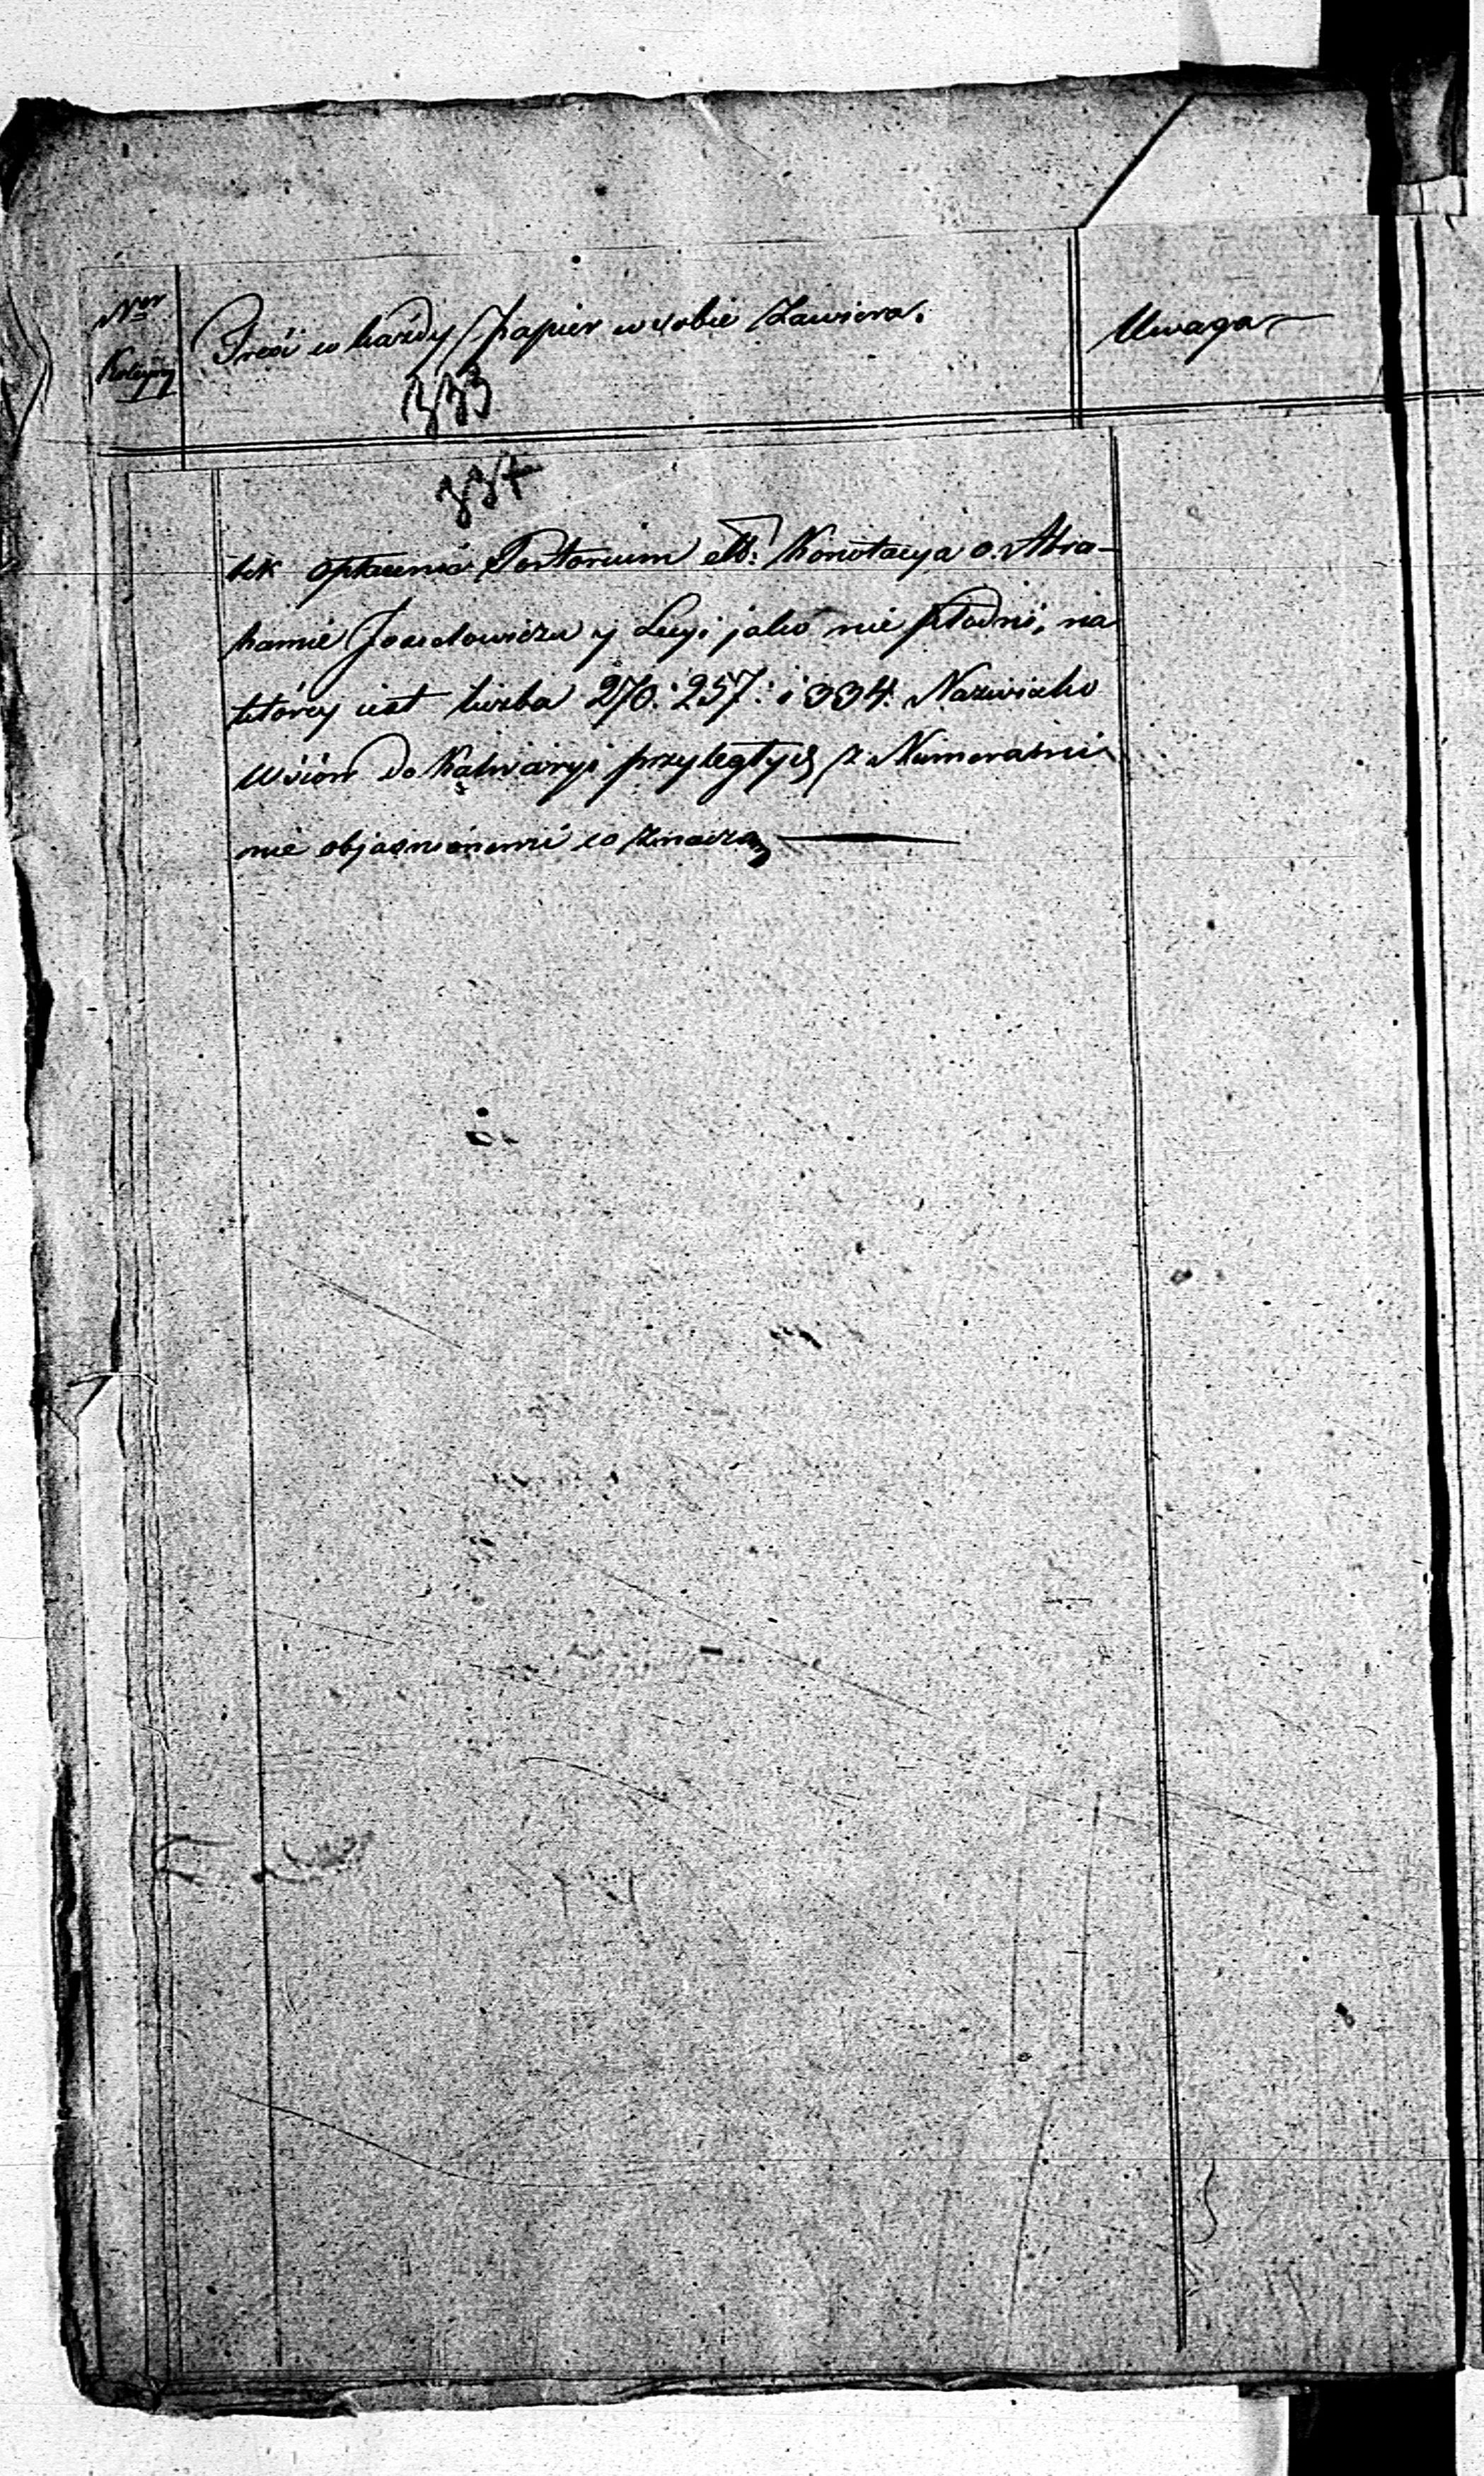 Nor Kolejny
Treść co każdy papier w sobie zawiera.
Uwaga
333
337
tek opłacenia Portorium etc: Konotacya o Abra-
hamie Joselowiczu y Leyi jako nie płodni, na
której iest liczba 270: 257: i 334. Nazwisko
Wsiów do Kalwaryi przyległych z Numerami
nie objaśnionemi co znaczą